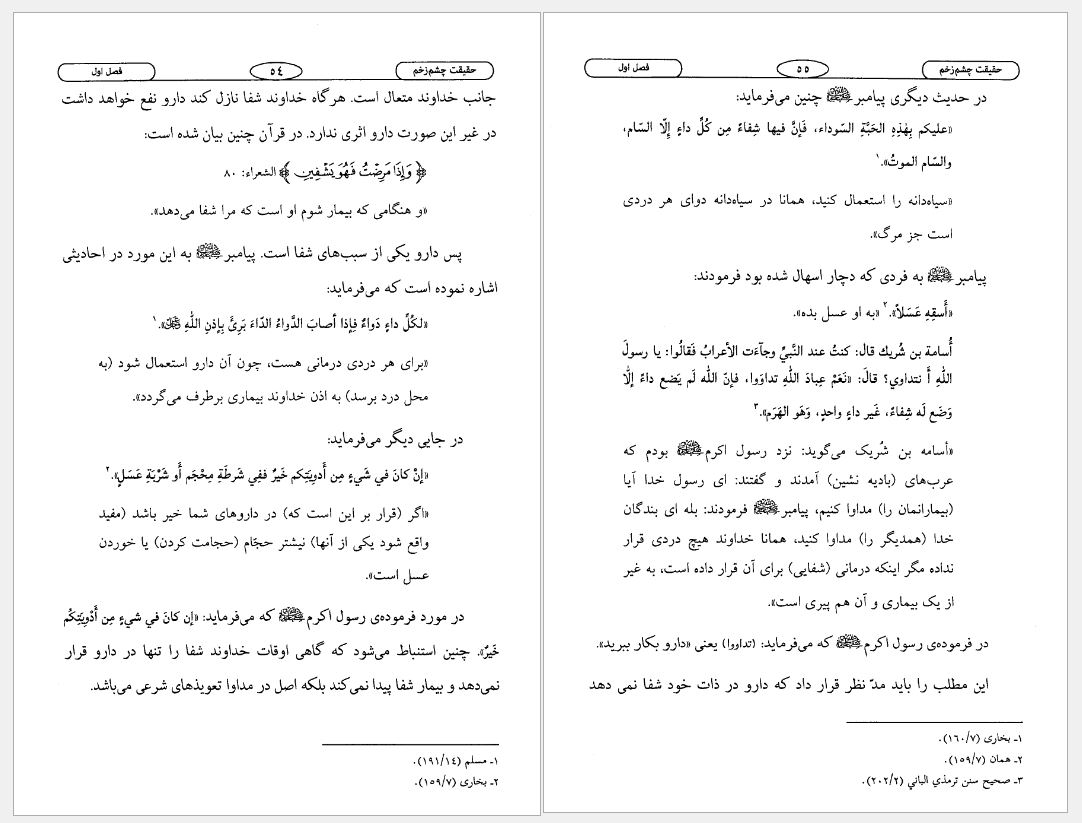 حقیقت چشم‌زخم ٥٤ فصل اول
جانب خداوند متعال است. هرگاه خداوند شفا نازل کند دارو نفع خواهد داشت
در غیر این صورت دارو اثری ندارد. در قرآن چنین بیان شده است:
﴿ وَإِذَا مَرِضْتُ فَهُوَ يَشْفِينِ ﴾ الشعراء: ٨٠
«و هنگامی که بیمار شوم او است که مرا شفا می‌دهد».
پس دارو یکی از سبب‌های شفا است. پیامبر ﷺ به این مورد در احادیثی
اشاره نموده است که می‌فرماید:
«لكُلِّ داءٍ دَواءٌ فإذا أصابَ الدَّواءُ الدّاءَ بَرِئَ بِإذنِ اللهِ ﷻ».١
«برای هر دردی درمانی هست، چون آن دارو استعمال شود (به
محل درد برسد) به اذن خداوند بیماری برطرف می‌گردد».
در جایی دیگر می‌فرماید:
«إنْ كانَ في شَيءٍ مِن أَدوِيَتِكم خَيرٌ ففِي شَرطَةِ مِحْجَم أَو شَرْبَةِ عَسَلٍ».٢
«اگر (قرار بر این است که) در داروهای شما خیر باشد (مفید
واقع شود یکی از آنها) نیشتر حجّام (حجامت کردن) یا خوردن
عسل است».
در مورد فرموده‌ی رسول اکرم ﷺ که می‌فرماید: «إن كانَ في شيءٍ مِن أَدْوِيَتِكُم
خَيرٌ». چنین استنباط می‌شود که گاهی اوقات خداوند شفا را تنها در دارو قرار
نمی‌دهد و بیمار شفا پیدا نمی‌کند بلکه اصل در مداوا تعویذهای شرعی می‌باشد.
١ـ مسلم (١٩١/١٤).
٢ـ بخاری (١٥٩/٧).
حقیقت چشم‌زخم ٥٥ فصل اول
در حدیث دیگری پیامبر ﷺ چنین می‌فرماید:
«عليكم بِهٰذِهِ الحَبَّةِ السّوداء، فَإنَّ فيها شِفاءً مِن كُلِّ داءٍ إلّا السّام،
والسّام الموتُ».١
«سیاه‌دانه را استعمال کنید، همانا در سیاه‌دانه دوای هر دردی
است جز مرگ».
پیامبر ﷺ به فردی که دچار اسهال شده بود فرمودند:
«أَسقِهِ عَسَلاً».٢ «به او عسل بده».
أُسامة بن شُريك قال: كنتُ عند النَّبيِّ وجآءَت الأعرابُ فَقالُوا: يا رسولَ
اللهِ أَ نتداوي؟ قالَ: «نَعَمْ عِبادَ اللهِ تداوَوا، فإنّ الله لَم يَضع داءً إلّا
وَضَع لَه شِفاءً، غَير داءٍ واحدٍ، وَهَو الهَرَم».٣
«أسامه بن شُریک می‌گوید: نزد رسول اکرم ﷺ بودم که
عرب‌های (بادیه نشین) آمدند و گفتند: ای رسول خدا آیا
(بیمارانمان را) مداوا کنیم، پیامبر ﷺ فرمودند: بله ای بندگان
خدا (همدیگر را) مداوا کنید، همانا خداوند هیچ دردی قرار
نداده مگر اینکه درمانی (شفایی) برای آن قرار داده است، به غیر
از یک بیماری و آن هم پیری است».
در فرموده‌ی رسول اکرم ﷺ که می‌فرماید: (تداووا) یعنی «دارو بکار ببرید».
این مطلب را باید مدّ نظر قرار داد که دارو در ذات خود شفا نمی دهد
١ـ بخاری (١٦٠/٧).
٢ـ همان (١٥٩/٧).
٣ـ صحيح سنن ترمذي الباني (٢٠٢/٢).